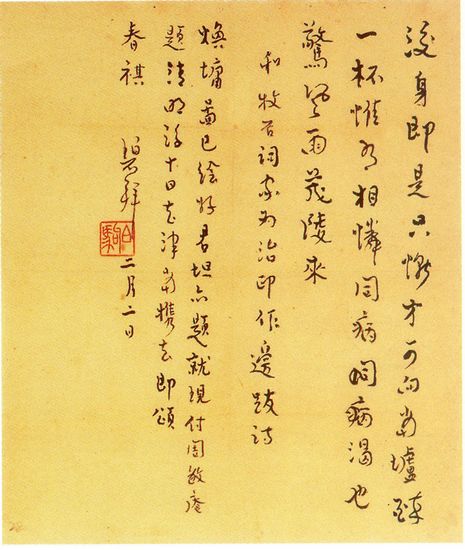 後身即是只慚才可向當壚醉
一杯惟相憐同病同病渴也
驚風雨茂陵來
和牧石詞家為治印作邊跋詩
煥墉圖已繪好君坦亦題就現付周敏庵
題清明後十日去津當攜去即頌
春祺 碧拜 二月二日